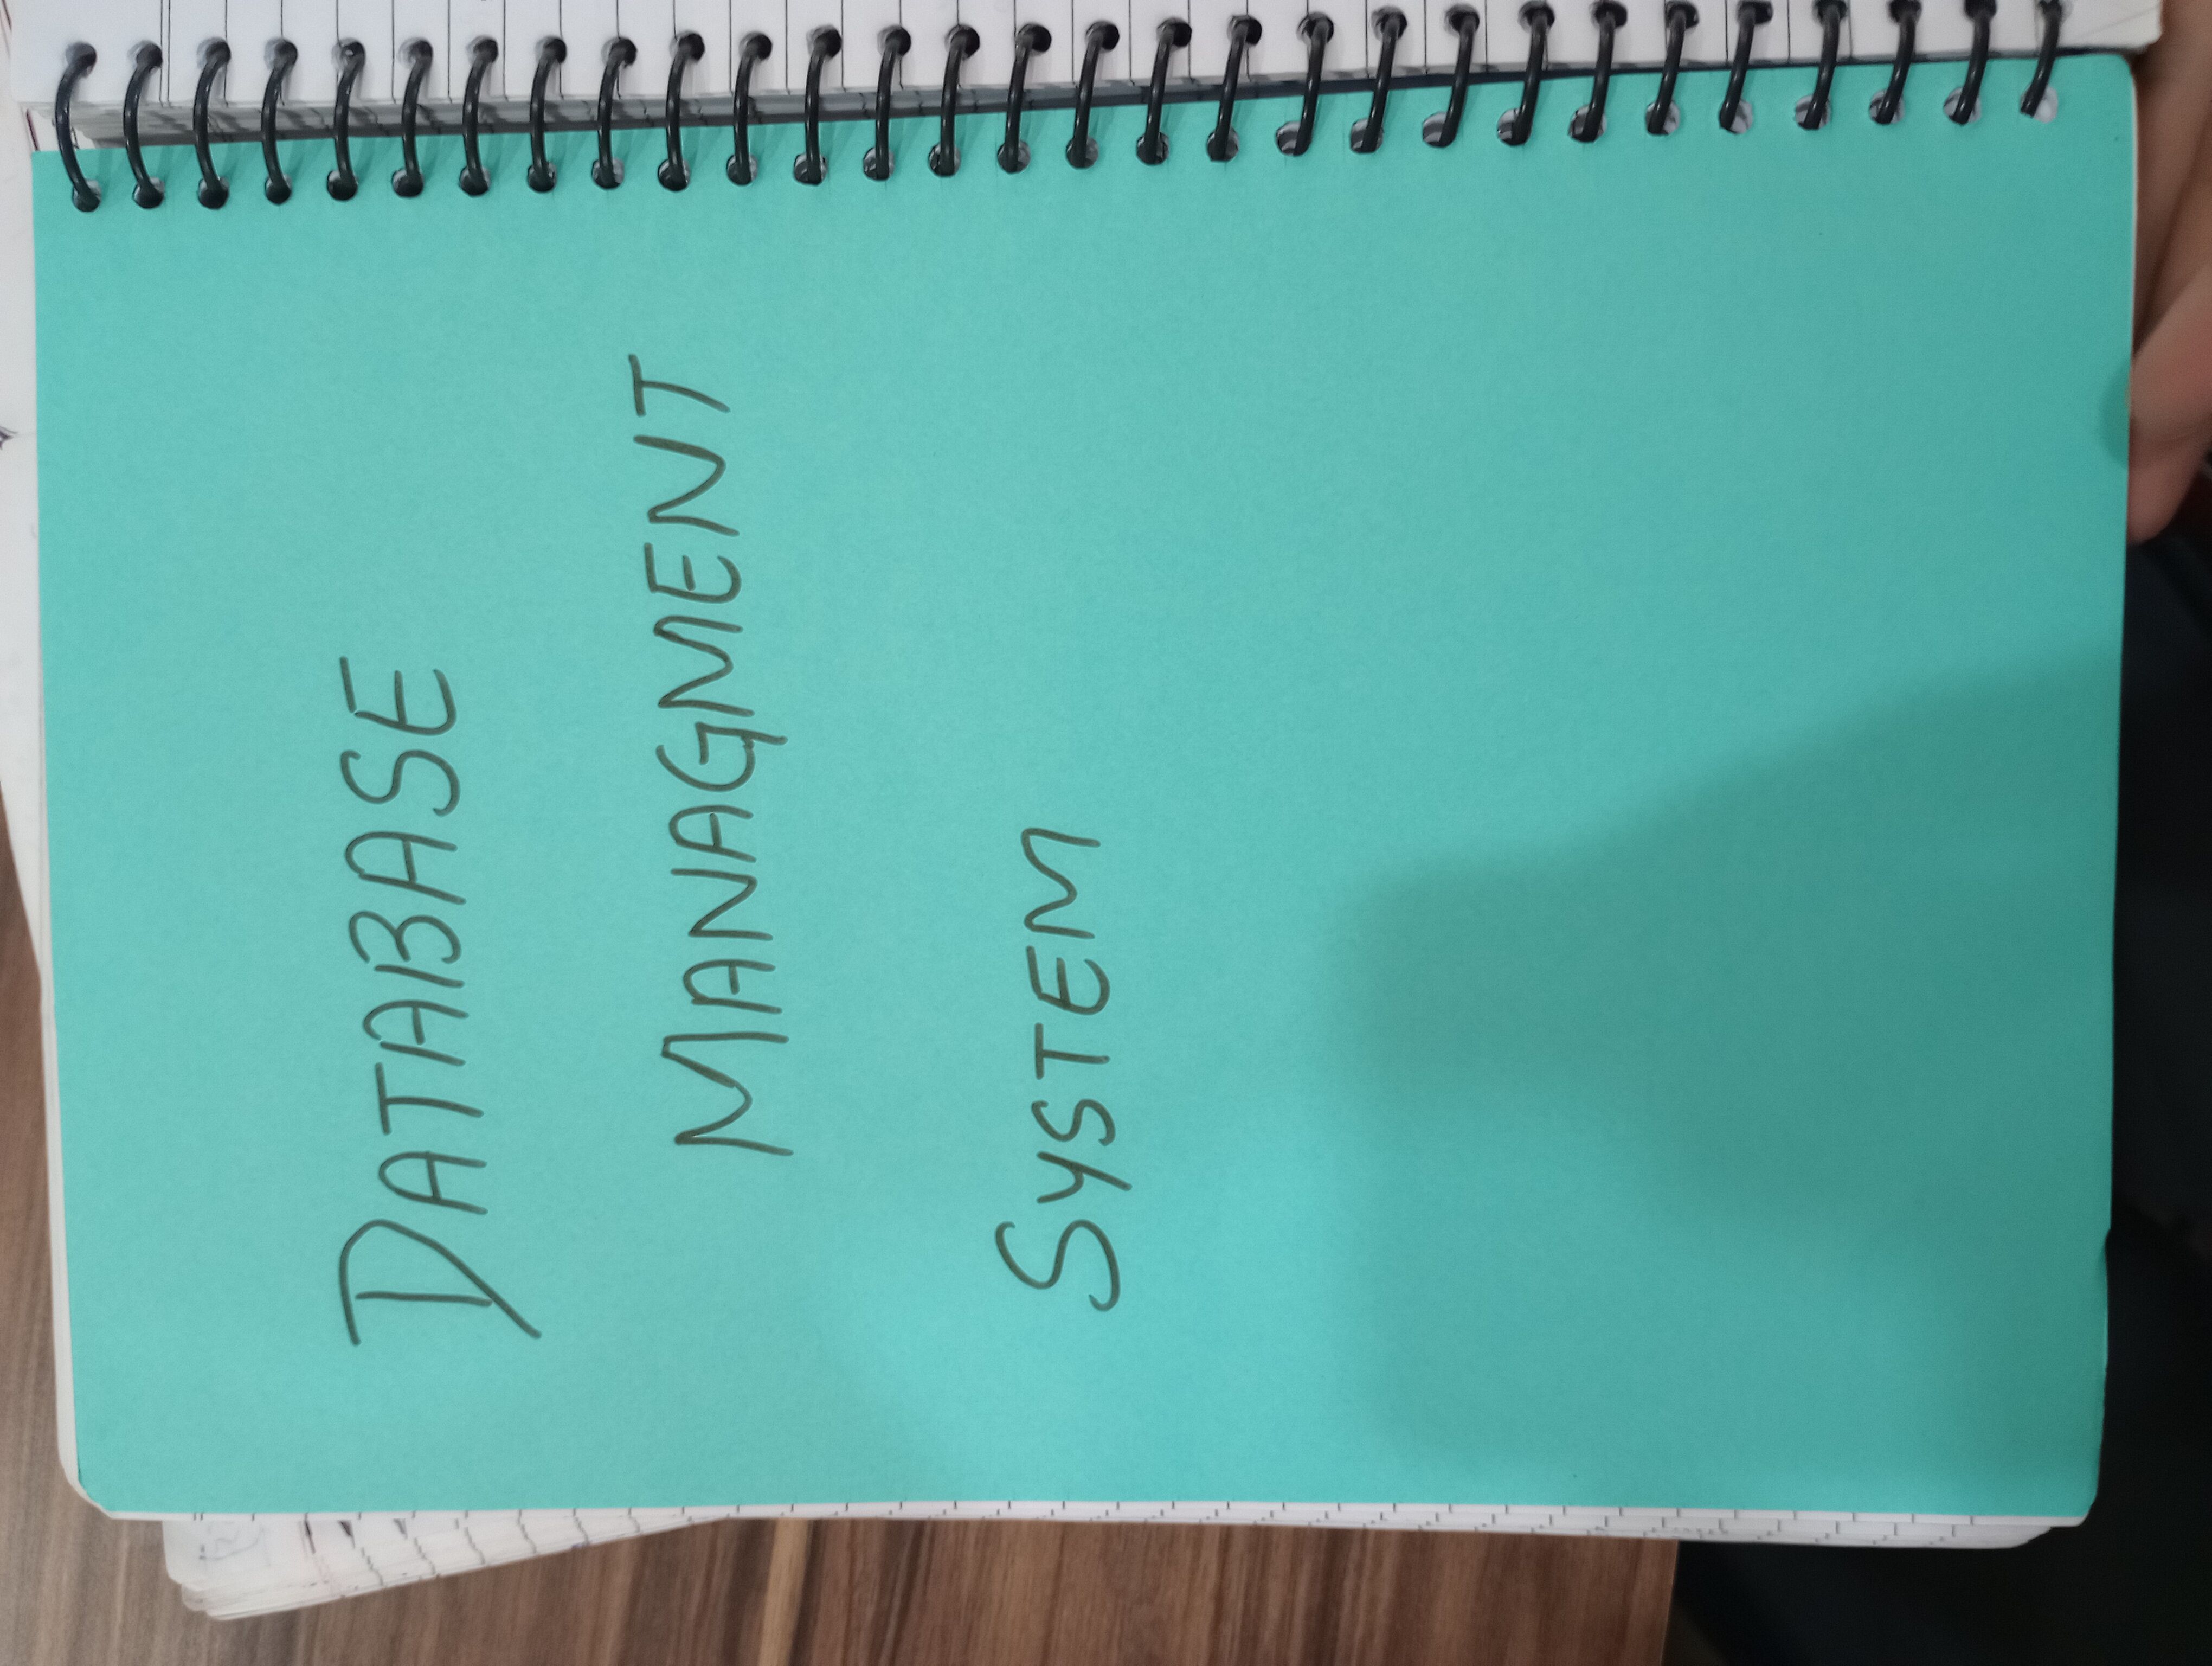 DATABASE
MANAGMENT
SYSTEM